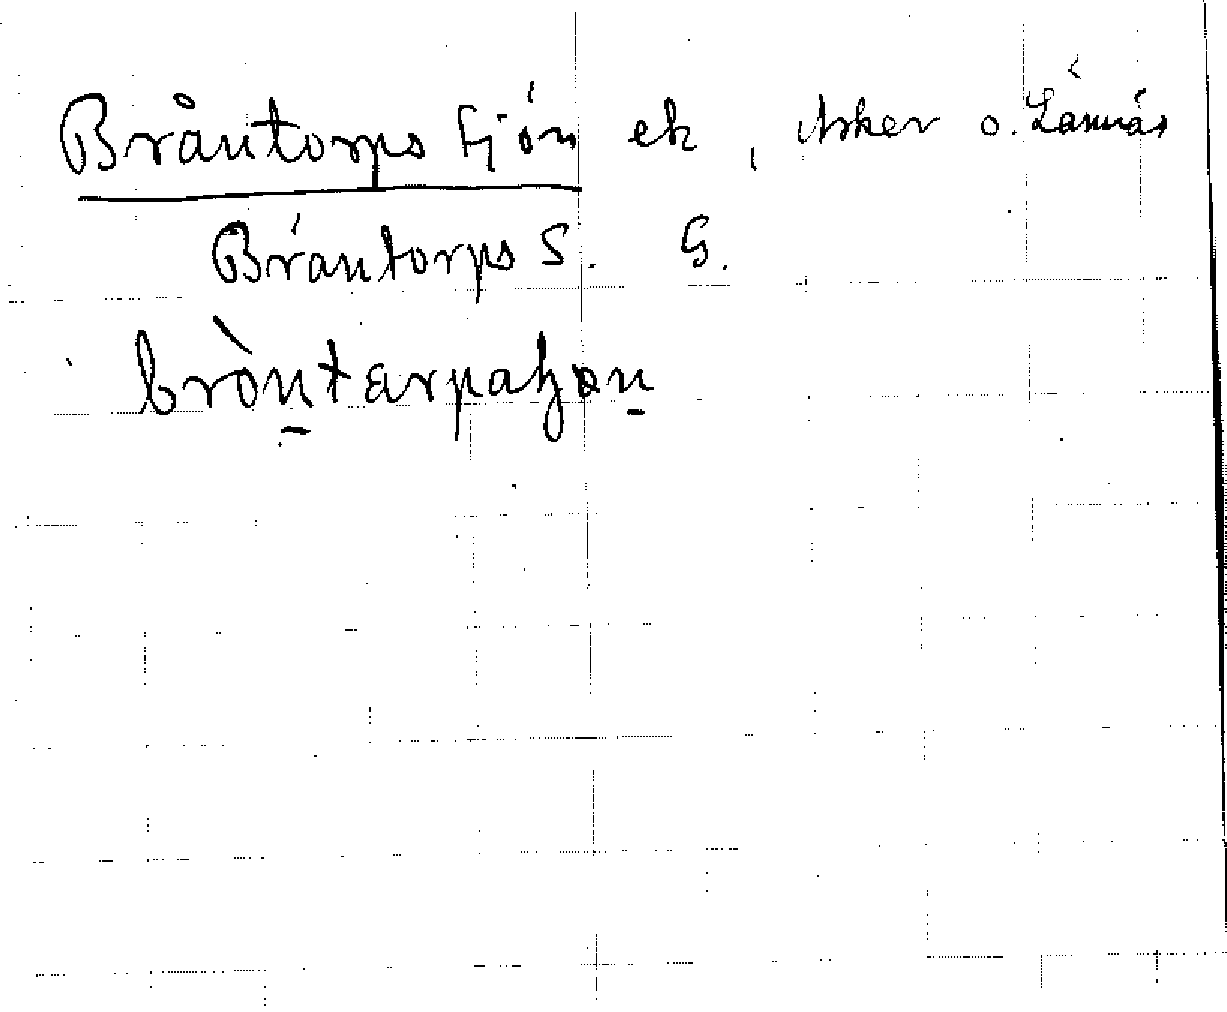 Bråntorps sjön ek, Asker o. Lännäs
Bråntorps S. G.